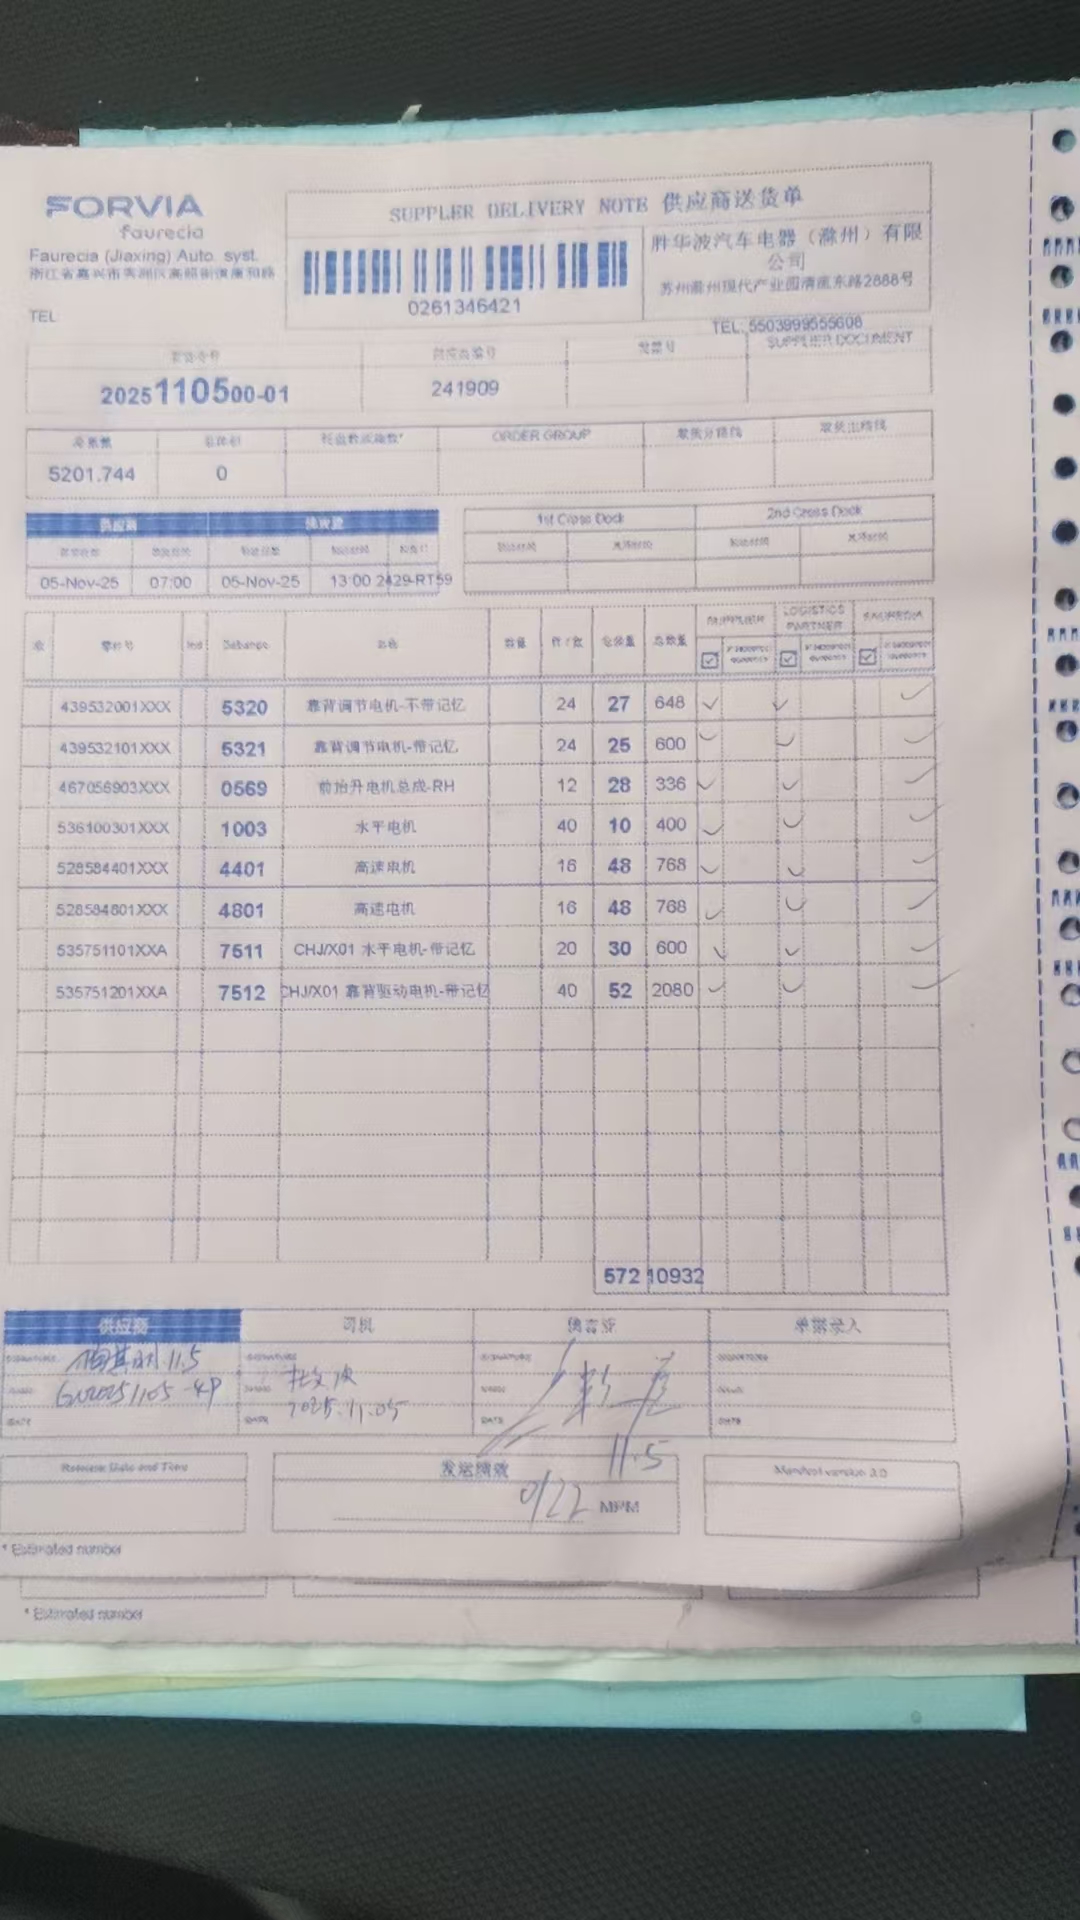 FORVIA
faurecia
Faurecia (Jiaxing) Auto. syst.
浙江省嘉兴市秀洲区高照街道康和路
TEL
SUPPLER DELIVERY NOTE 供应商送货单
0261346421
胜华波汽车电器（滁州）有限
公司
苏州滁州现代产业园清流东路2888号
TEL: 5503999555608
供应商编号 发票号 SUPPLIER DOCUMENT
2025110500-01 241909
总重量 总体积 托盘数或箱数* ORDER GROUP 取货分路线 取货主路线
5201.744 0
供应商 佛吉亚 1st Cross Dock 2nd Cross Dock
05-Nov-25 07:00 05-Nov-25 13:00 2429-RT59
零件号 Ind Sebango 名称 数量 件/数 总数量 SUPPLIER LOGISTICS PARTNER FAURECIA
439532001XXX 5320 靠背调节电机-不带记忆 24 27 648
439532101XXX 5321 靠背调节电机-带记忆 24 25 600
467056903XXX 0569 前抬升电机总成-RH 12 28 336
536100301XXX 1003 水平电机 40 10 400
528584401XXX 4401 高速电机 16 48 768
528584801XXX 4801 高速电机 16 48 768
535751101XXA 7511 CHJ/X01 水平电机-带记忆 20 30 600
535751201XXA 7512 CHJ/X01 靠背驱动电机-带记忆 40 52 2080
572 10932
供应商 司机 佛吉亚 单据录入
SIGNATURE 11.5 SIGNATURE SIGNATURE SIGNATURE
NAME GW20251105-4P NAME NAME NAME
DATE DATE 2025.11.05 DATE DATE
11.5
Release Date and Time 发运绩效 Manifest version 3.0
0/22 MPM
* Estimated number
* Estimated number